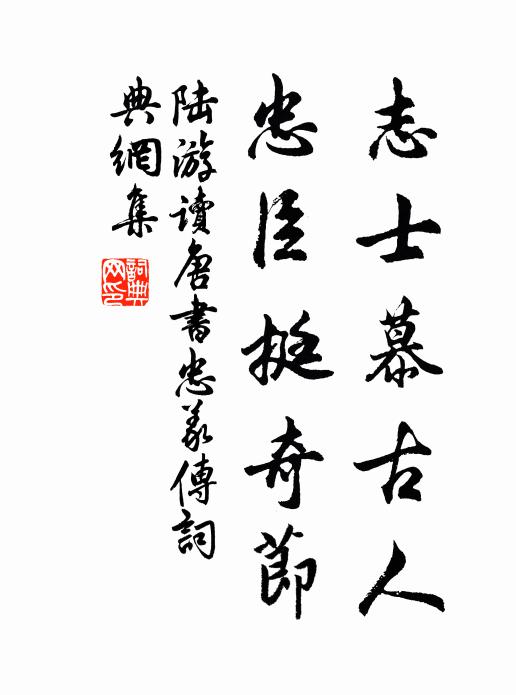 志士慕古人
忠臣挺奇節
陆游讀唐書忠义傳詞
典網集
詞典
网印